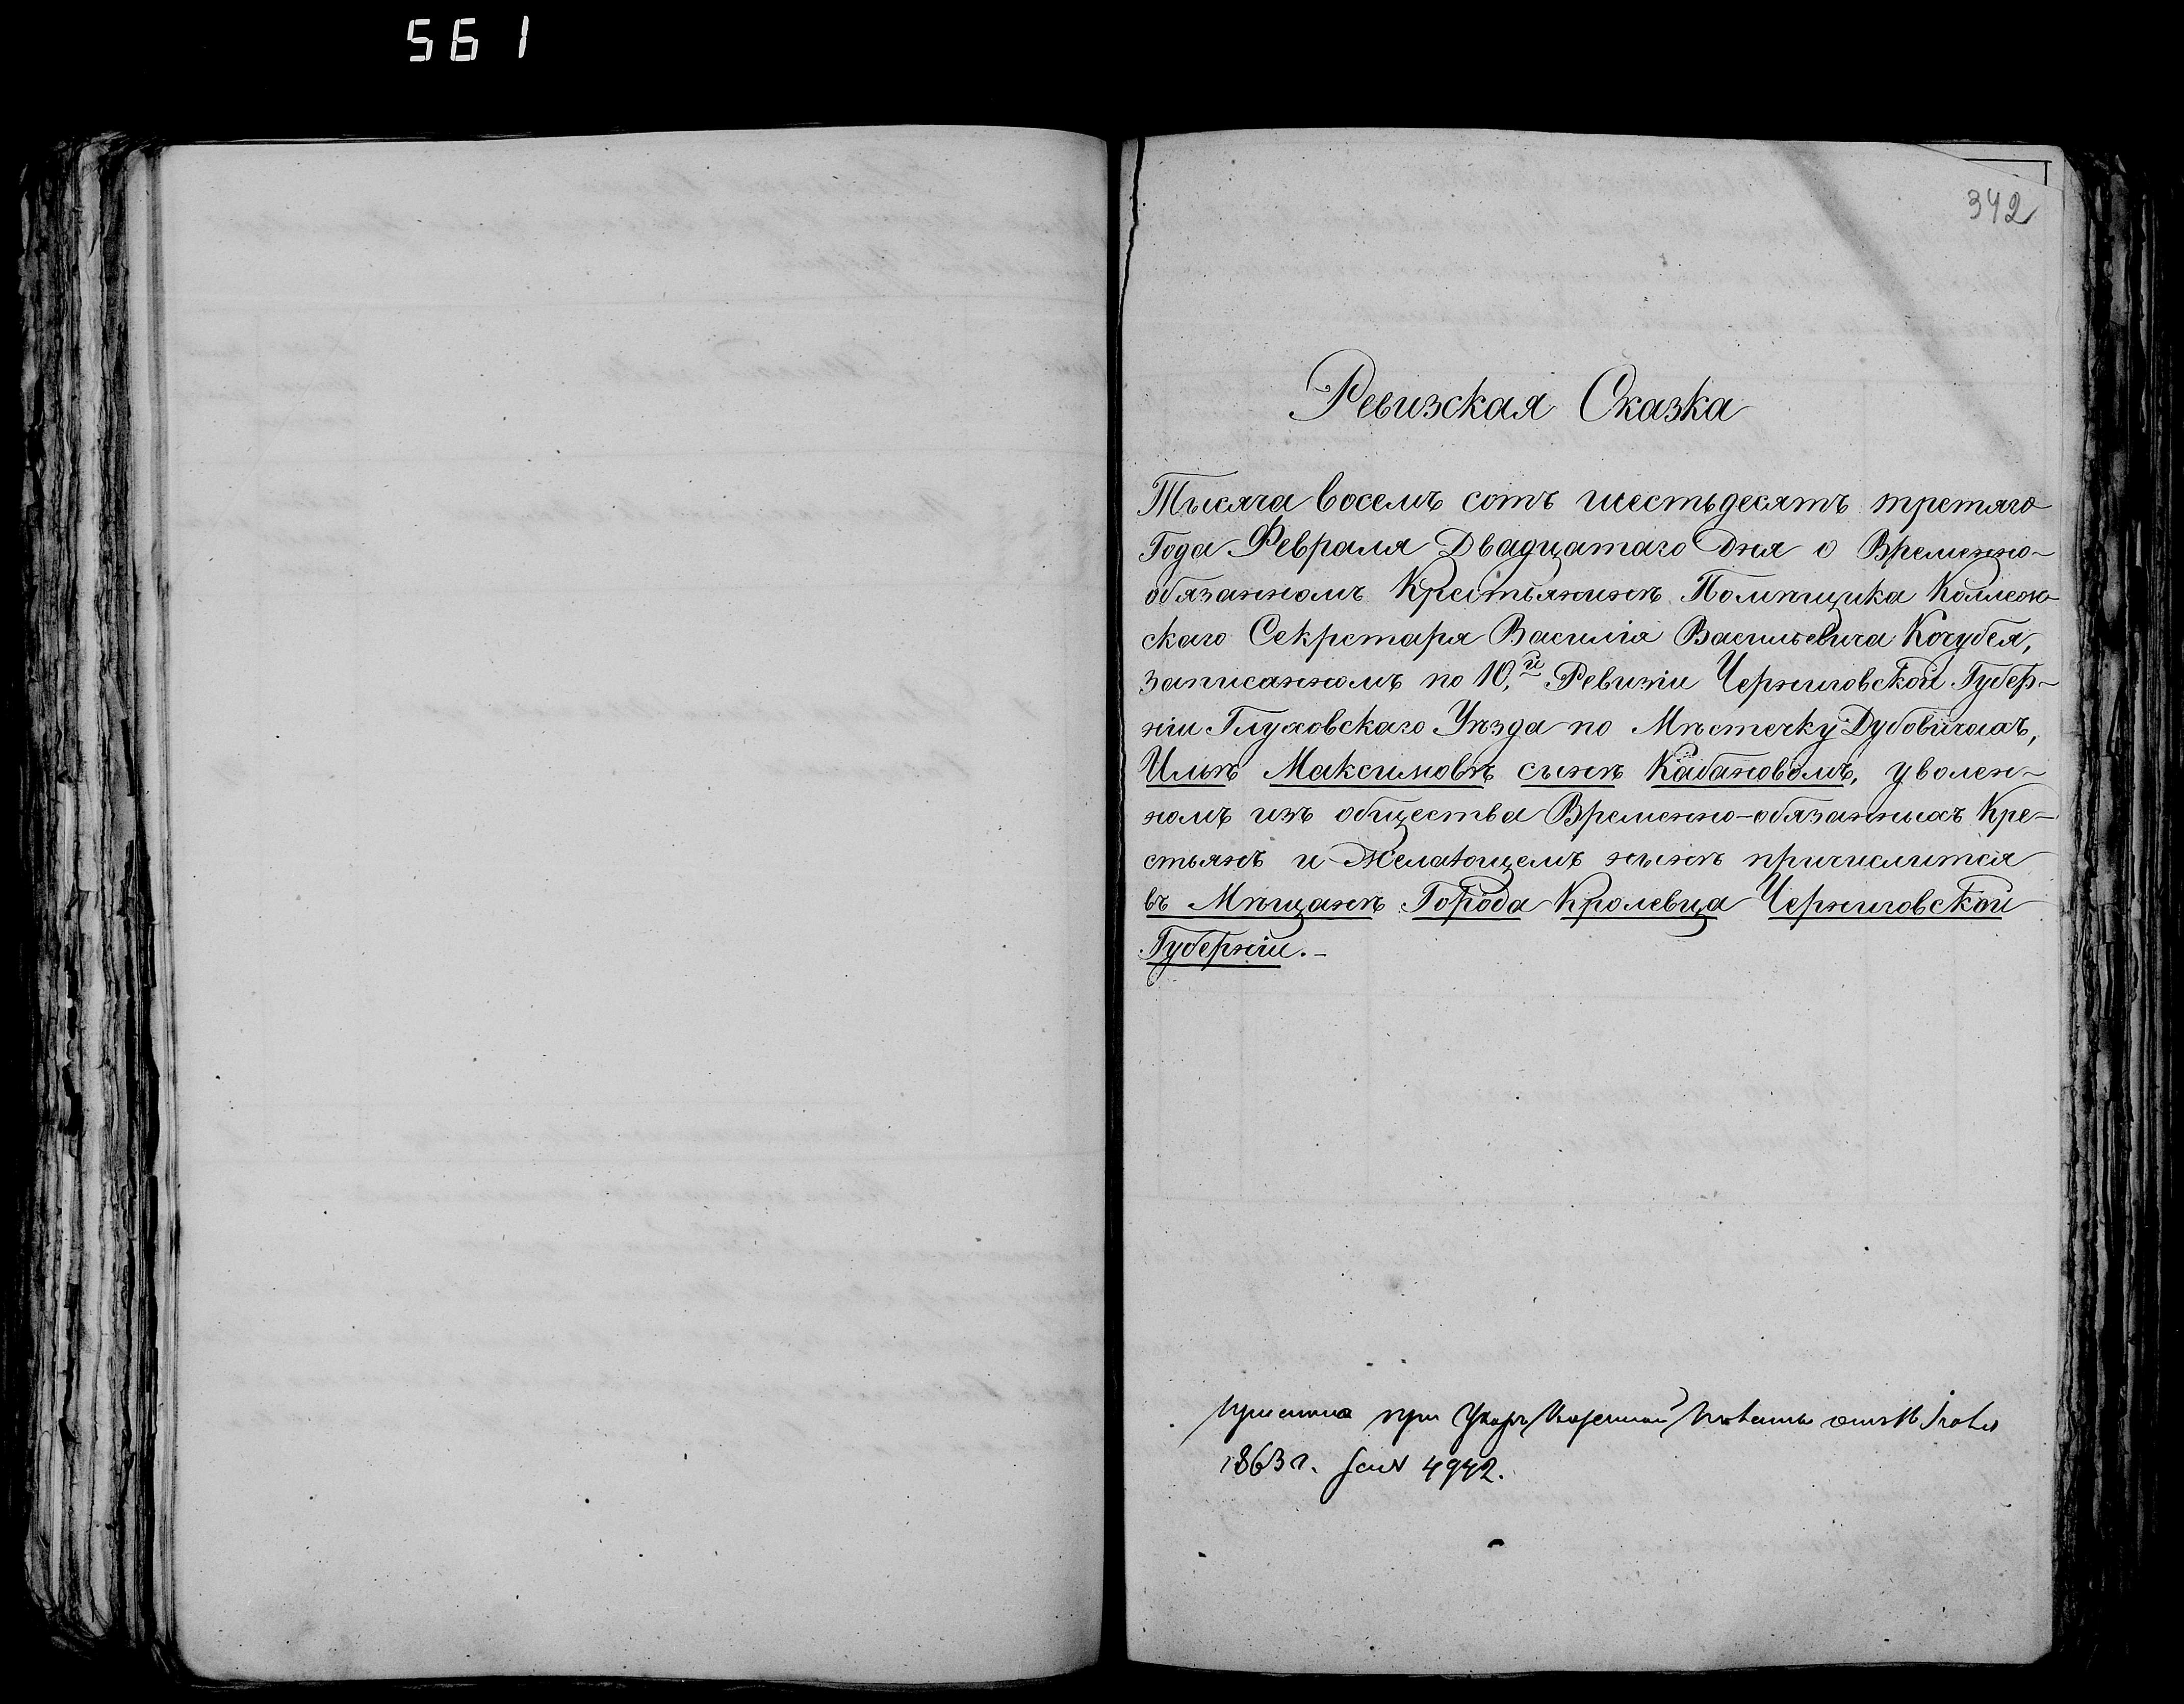 561
342
Ревизская Сказка
Тысяча восемъ сотъ шестьдесятъ третяго
Года Февраля Двадцатаго Дня о Временно-
обязанномъ Крестьянинѣ Помѣщика Коллеж-
скаго Секретаря Василія Васильевича Кочубея,
записанномъ по 10.й Ревизіи Черниговской Губер-
ніи Глуховскаго Уѣзда по Мѣстечку Дубовичахъ,
Ильѣ Максимовѣ сынѣ Кабановомъ, уволен-
номъ изъ общества Временно-обязанныхъ Кре-
стьянъ и Желающемъ нынѣ причислится
въ Мѣщанѣ Города Кролевца Черниговской
Губерніи.-
при
1863 г. 4942.